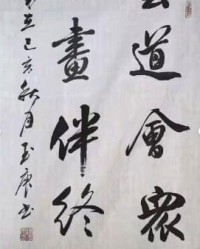 道會衆
畫伴終
己亥秋月玉庚书